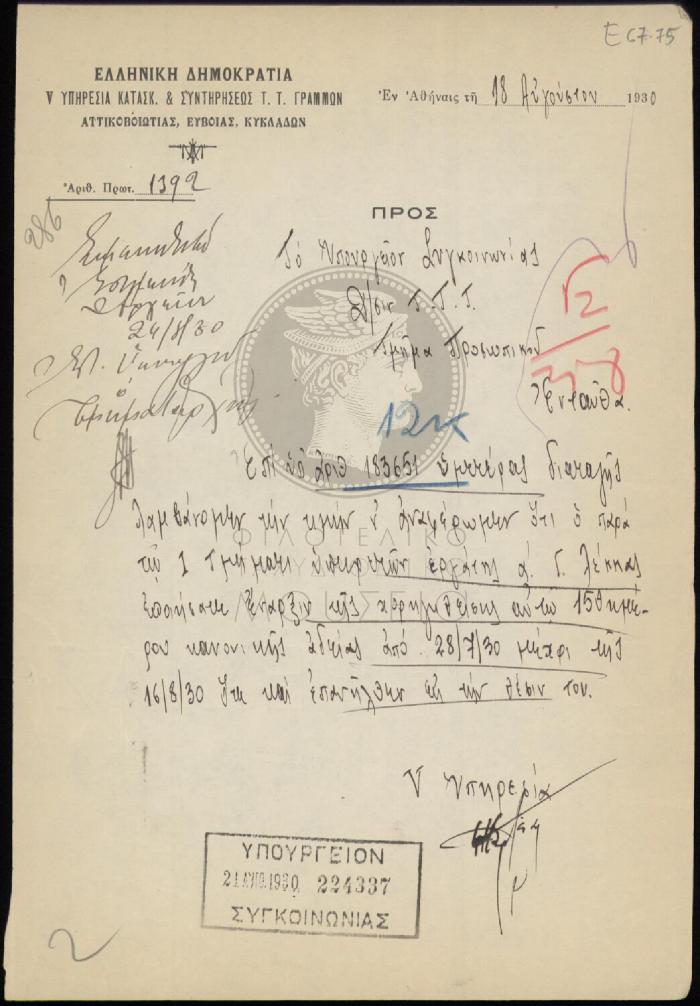 Ε 67.75
ΕΛΛΗΝΙΚΗ ΔΗΜΟΚΡΑΤΙΑ
V ΥΠΗΡΕΣΙΑ ΚΑΤΑΣΚ. & ΣΥΝΤΗΡΗΣΕΩΣ Τ. Τ. ΓΡΑΜΜΩΝ
ΑΤΤΙΚΟΒΟΙΩΤΙΑΣ, ΕΥΒΟΙΑΣ, ΚΥΚΛΑΔΩΝ
Ἐν Ἀθήναις τῇ 18 Αὐγούστου 1930
Ἀριθ. Πρωτ. 1392
286
ΠΡΟΣ
Τὸ Ὑπουργεῖον Συγκοινωνίας
Δ/σιν Τ.Τ.Τ.
Τμῆμα Προσωπικοῦ
Ἐνταῦθα.
24/8/30
ὁ
Τμηματάρχης
12κ
Ἐπὶ ὑπ ἀριθ 183651 ὑμετέρας διαταγῆς
λαμβάνομεν τὴν τιμὴν ν' ἀναφέρωμεν ὅτι ὁ παρὰ
τῷ 1 Τμήματι ὑπηρετῶν ἐργάτης Γ. Λέκκας
ἐποιήσατο ἔναρξιν τῆς χορηγηθείσης αὐτῷ 15θημέ-
ρου κανονικῆς ἀδείας ἀπό 28/7/30 μέχρι τῆς
16/8/30 ὅτε καὶ ἐπανῆλθεν εἰς τὴν θέσιν του.
ΦΙΛΟΤΕΛΙΚΟ
ΜΟΥΣΕΙΟ
V Ὑπηρεσία
ΥΠΟΥΡΓΕΙΟΝ
21 ΑΥΓ. 1930. 224337
ΣΥΓΚΟΙΝΩΝΙΑΣ
2